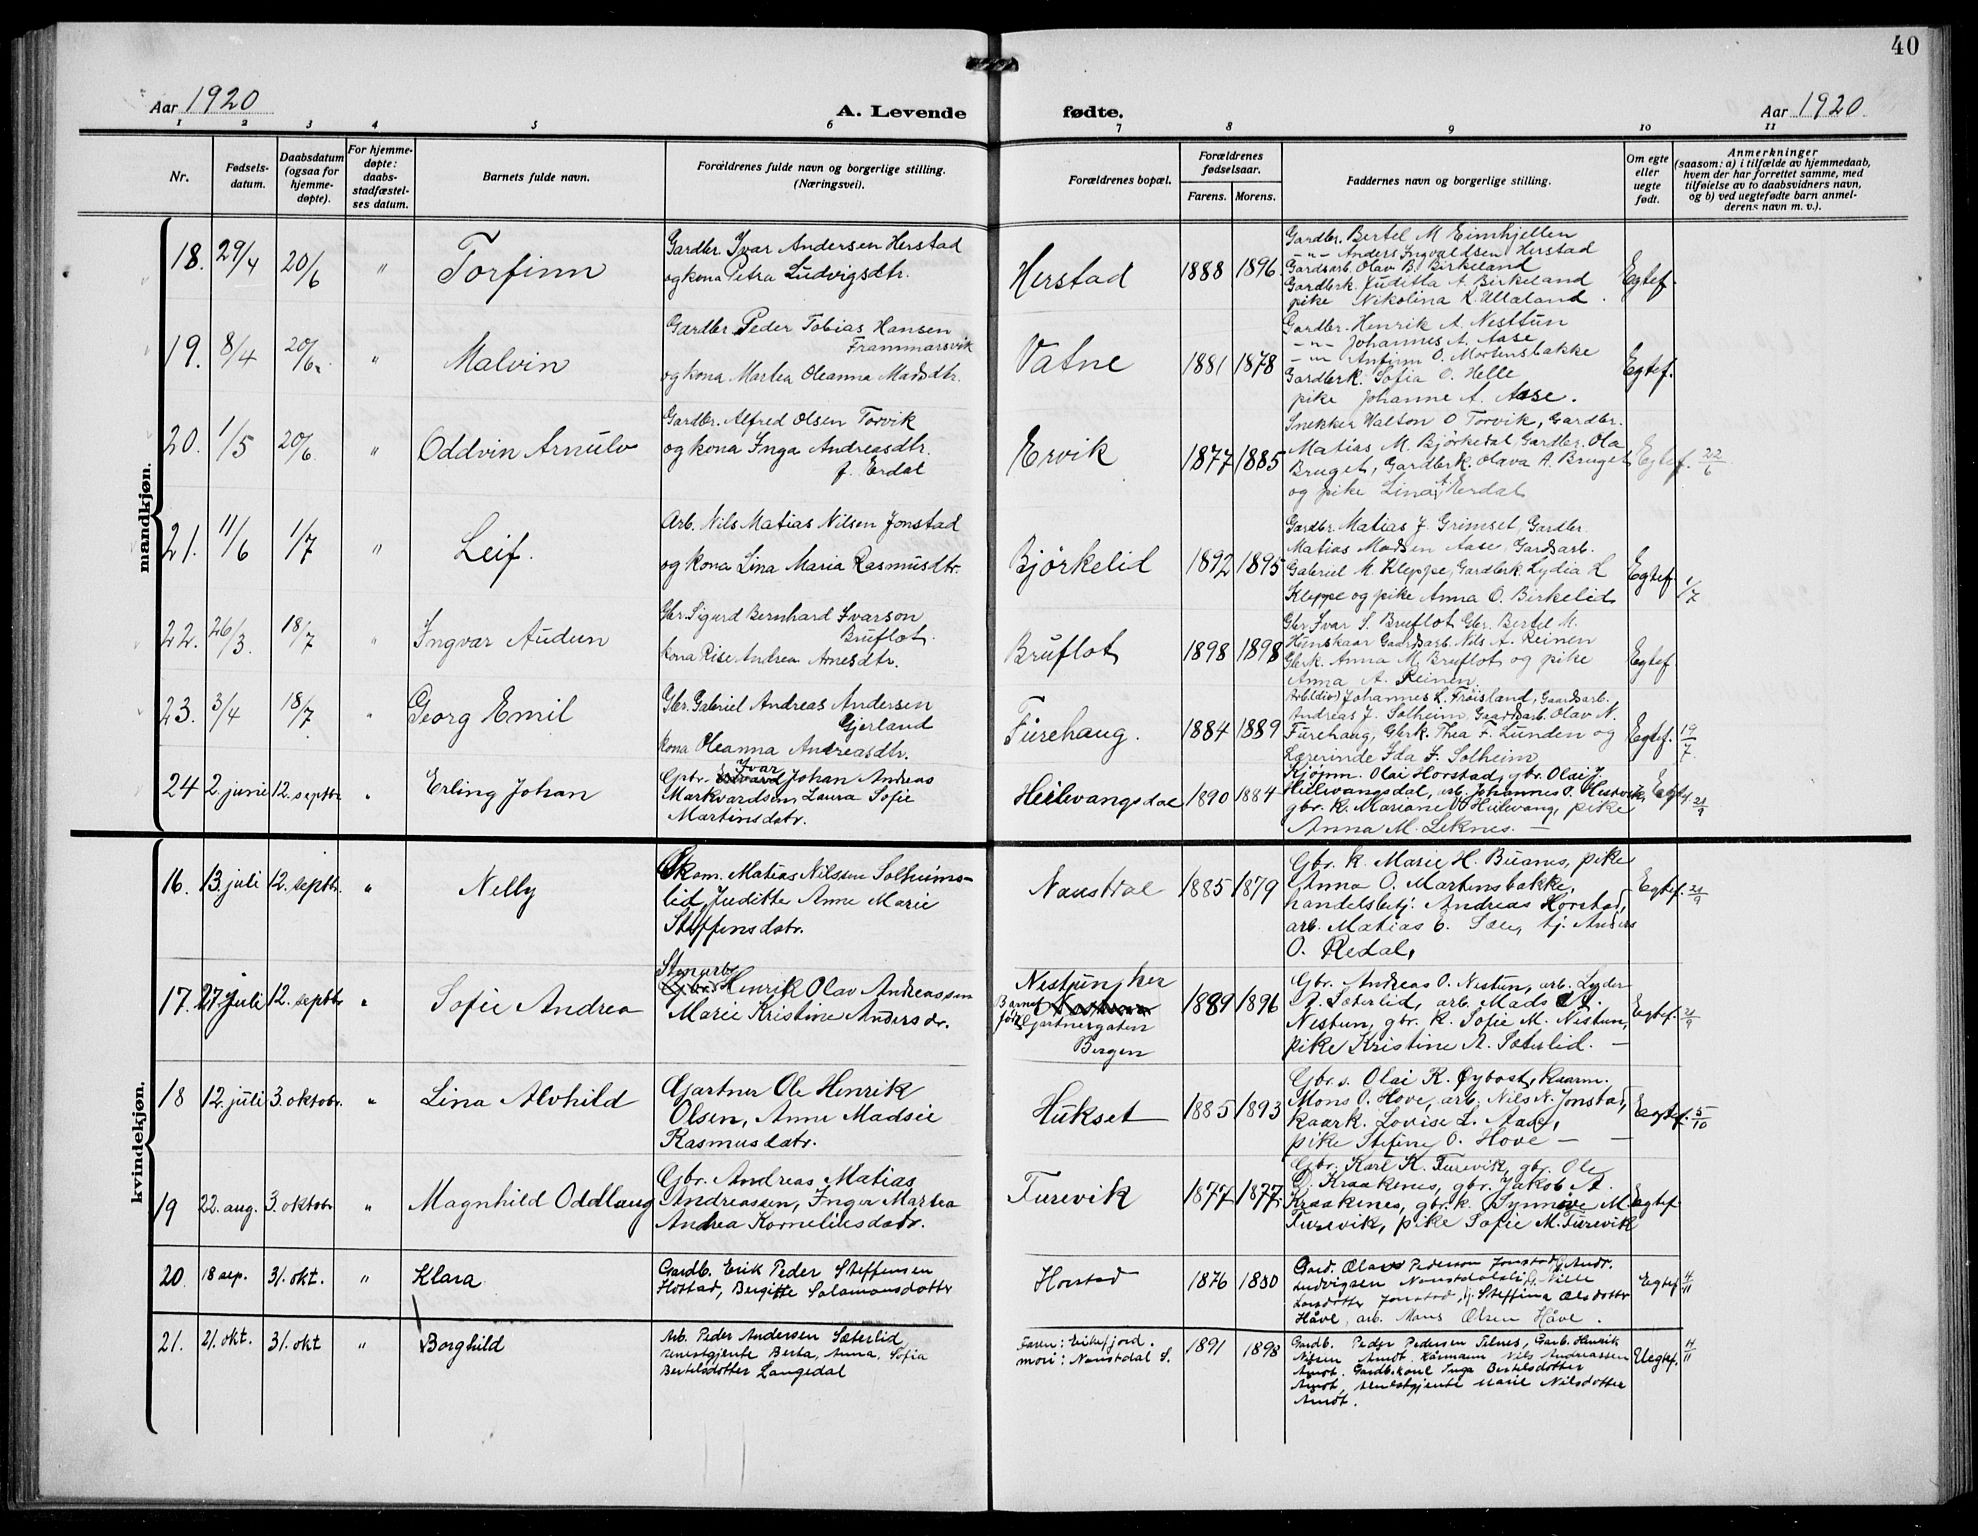 40
Aar 1920
A. Levende fødte.
Aar 1920.
1 2 3 4 5 6 7 8 9 10 11
Nr.
Fødsels-
datum.
Daabsdatum
(ogsaa for
hjemme-
døpte).
For hjemme-
døpte:
daabs-
stadfæstel-
ses datum.
Barnets fulde navn.
Forældrenes fulde navn og borgerlige stilling.
(Næringsvei).
Forældrenes bopæl.
Forældrenes
fødselsaar.
Farens. Morens.
Faddernes navn og borgerlige stilling.
Om egte
eller
uegte
født.
Anmerkninger
(saasom: a) i tilfælde av hjemmedaab,
hvem der har forrettet samme, med
tilføielse av to daabsvidners navn,
og b) ved uegtefødte barn anmel-
derens navn m. v.).
mandkjøn.
18. 29/4 20/6 " Torfinn
Gardbr. Ivar Andersen Herstad
og kona Petra Ludvigsdtr.
Herstad 1888 1896
Gardbr. Bertel M Eimhjellen
-"- Anders Ingvaldsen Herstad
Gardsarb. Olav B. Birkeland
Gardbrk. Juditta A. Birkeland
pike Nikolina K. Ullaland.
Egtef.
19. 8/4 20/6. " Malvin
Gardbr. Peder Tobias Hansen
Frammarsvik
og kona Martea Oleanna Madsdtr.
Vatne 1881 1878
Gardbr. Henrik A. Nesttun
-"- Johannes A. Aase
-"- Anfinn O. Mortensbakke
Gardbrk. Sofia O. Helle
pike Johanne A. Aase.
Egtef.
20. 1/5 20/6. " Oddvin Arnulv
Gardbr. Alfred Olsen Torvik
og kona Inga Andreasdtr.
f. Erdal
Ervik 1877 1885
Snekker Walton O Torvik, Gardbr.
Matias M. Bjørkedal, Gardbr. Ola
Bruget, Gardbrk. Olava A. Bruget
og pike Lina A. Erdal
Egtef. 22/6
21. 11/6 1/7 " Leif.
Arb. Nils Matias Nilsen Jonstad
og kona Lina Maria Rasmusdtr.
Bjørkelid 1892 1895
Gardbr. Matias J. Grimset, Gardbr.
Matias Madsen Aase, Gardsarb.
Gabriel M. Kleppe, Gardbrk. Lydia L
Kleppe og pike Anna O. Birkelid
Egtef. 1/7
22. 26/3. 18/7 " Ingvar Audun
Gbr. Sigurd Bernhard Ivarson
Bruflot.
kona Rise Andrea Arnesdtr.
Bruflot 1898 1898
Gbr. Ivar S. Bruflot Gbr. Bertel M.
Hunskaar Gaardsarb. Nils A. Reinen
Gbrk. Anna M. Bruflot og pike
Anna A. Reinen.
Egtef
23. 3/4 18/7 " Georg Emil
Gbr. Gabriel Andreas Andersen
Gjerland
kona Oleanna Andreasdtr.
Furehaug. 1884 1889
Johannes L. Frøisland, Gaardsarb.
Andreas J. Solheim, Gaardsarb. Olav N.
Furehaug, Gbrk. Thea F. Lunden og
Lærerinde Ida F. Solheim
Egtef. 19/7
24 2. juni 12. septbr " Erling Johan
Gbr. Ivar Johan Andreas
Markvardsen, Laura Sofie
Martinsdatr.
Heilevangsdal 1890 1884
Kjøpm. Olai Horstad, gbr. Olai J.
Heilevangsdal, arb. Johannes O. Hestvik,
gbr. k. Mariane Heilevang, pike
Anna M. Leknes. —
Egtef 21/9
kvindekjøn.
16. 13. juli 12. septbr. " Nelly
Økom. Matias Nilssen Solheims-
lid, Juditte Anne Marie
Steffensdatr.
Naustdal 1885 1879
Gbr. k. Marie H. Buanes, pike
Anna O. Martinsbakke,
handelsbetj. Andreas Horstad,
arb. Matias E. Sæle, tj. Anders
O. Redal,
Egtef. 21/9
17. 27 juli 12. septbr " Sofie Andrea
Stenarb.
Henrik Olav Andreassen
Marie Kristine Andersdr.
Nestun, her
Barnet født Gartnergaten
Bergen
1889 1896
Gbr. Andreas O. Nestun, arb. Lyder
A. Sæterlid, arb. Mads A.
Nestun, gbr. k. Sofie M. Nestun,
pike Kristine A. Sæterlid. —
Egtef. 21/9
18 12. juli 3. oktobr. " Lina Alvhild
Gartner Ole Henrik
Olsen, Anne Madsie
Rasmusdatr.
Hukset 1885 1893
Gbr. s. Olai R. Øybost, kaarm.
Mons O. Hove, arb. Nils N. Jonstad,
kaark. Lovise L. Aase,
pike Stefine O. Hove — —
Egtef. 5/10
19 22. aug. 3. oktobr " Magnhild Oddlaug
Gbr. Andreas Matias
Andreassen, Inger Martea
Andrea Korneliusdatr.
Furevik 1877 1877.
Gbr. Karl K. Furevik, gbr. Ole
O. Kraakenes, gbr. Jakob A.
Kraakenes, gbr. k. Synnøve M.
Furevik, pike Sofie M. Furevik
Egtef
20. 18 sep. 31. okt. " Klara
Gardb. Erik Peder Steffensen
Hostad, Bergitte Salamonsdotter
Horstad 1876 1880
Gard. Olaus Pederson Jonstad, Andr.
Ludvigsen Naustdalslid, Nille
Larsdotter Jonstad, Steffina Olsdotter
Håve, arb. Mons Olsen Håve.
Egtef 4/11
21. 21. okt. 31. okt " Borghild
Arb. Peder Andersen Sæterlid
tenestgjente Berta, Anna, Sofia
Bertilsdotter Langedal
Faren: Eikefjord.
mori: Naustdal S.
1891 1898
Gardb. Peder Pedersen Telnes, Garb. Henrik
Nilsen Arndt. Kårmann Nils Andreassen
Arndt. Gardbkone Inga Bertilsdotter
Arndt, tenestgjente Marie Nilsdotter
Arndt.
Uegtef. 4/11